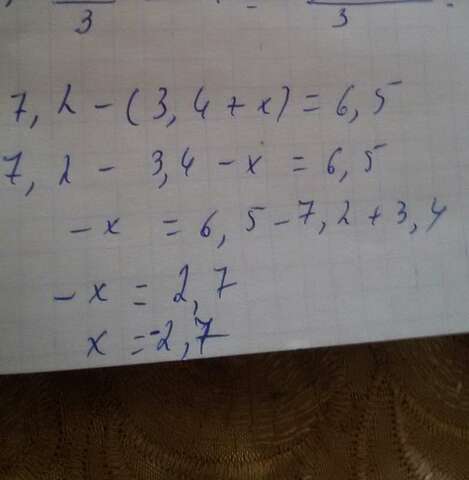 3 = 3
7,2 - (3,4 + x) = 6,5
7,2 - 3,4 - x = 6,5
- x = 6,5 - 7,2 + 3,4
- x = 2,7
x = -2,7